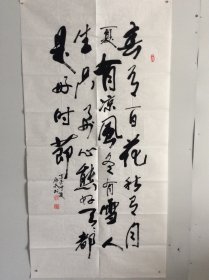 春有百花秋有月
夏有凉風冬有雪人
生只要心態好天都
是好时節